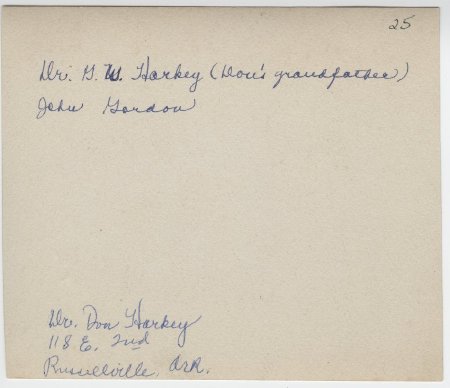 25
Dr. G. W. Harkey (Don's grandfather)
John Gordon
Dr. Don Harkey
118 E. 2nd
Russellville, Ark.